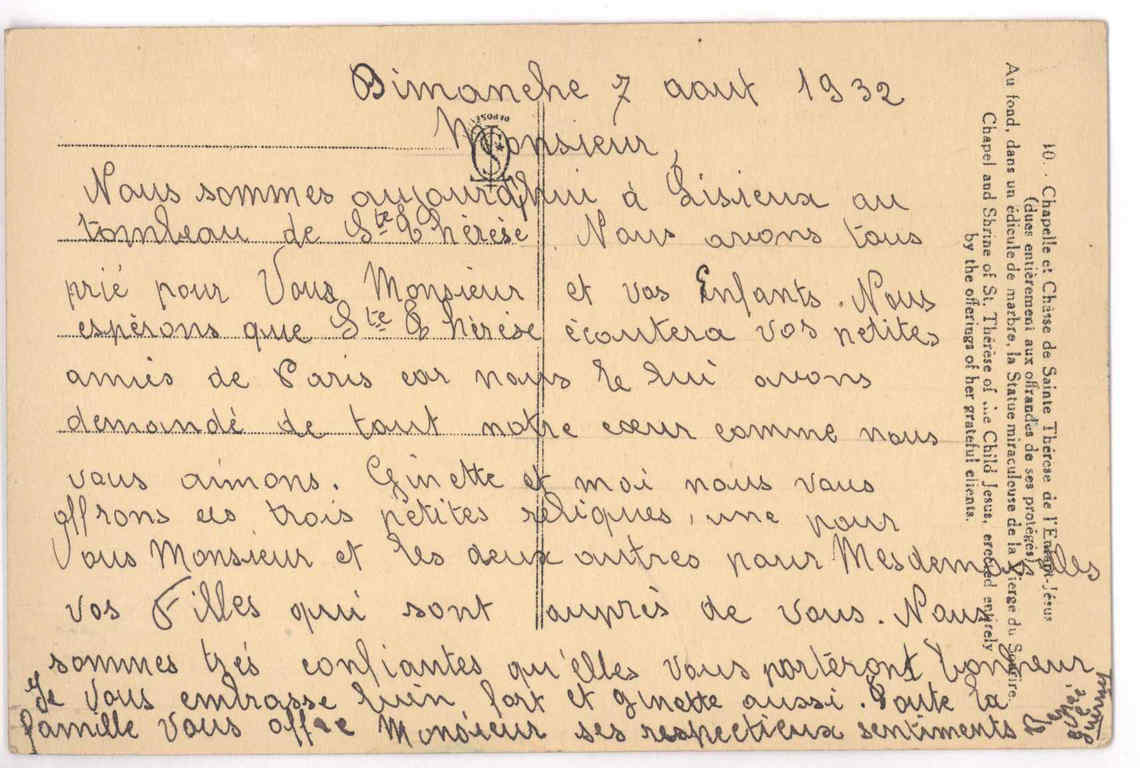 Dimanche 7 aout 1932
Monsieur,
Nous sommes aujourd'hui à Lisieux au
tombeau de Ste Thérèse. Nous avons tous
prié pour Vous Monsieur et vos Enfants. Nous
espèrons que Ste Thérèse écoutera vos petites
amies de Paris car nous le lui avons
demandé de tout notre cœur comme nous
vous aimons. Ginette et moi nous vous
offrons ces trois petites reliques, une pour
Vous Monsieur et les deux autres pour Mesdemoiselles
vos Filles qui sont auprès de vous. Nous
sommes très confiantes qu'elles vous porteront bonheur
Je Vous embrasse bien fort et Ginette aussi. Toute la
famille Vous offre Monsieur ses respectieux sentiments
DEPOSE
10. - Chapelle et Châsse de Sainte Thérèse de l'Enfant-Jésus
(dues entièrement aux offrandes de ses protégés)
Au fond, dans un édicule de marbre, la Statue miraculeuse de la Vierge du Sourire.
Chapel and Shrine of St. Thérèse of the Child Jesus, erected entirely
by the offerings of her grateful clients.